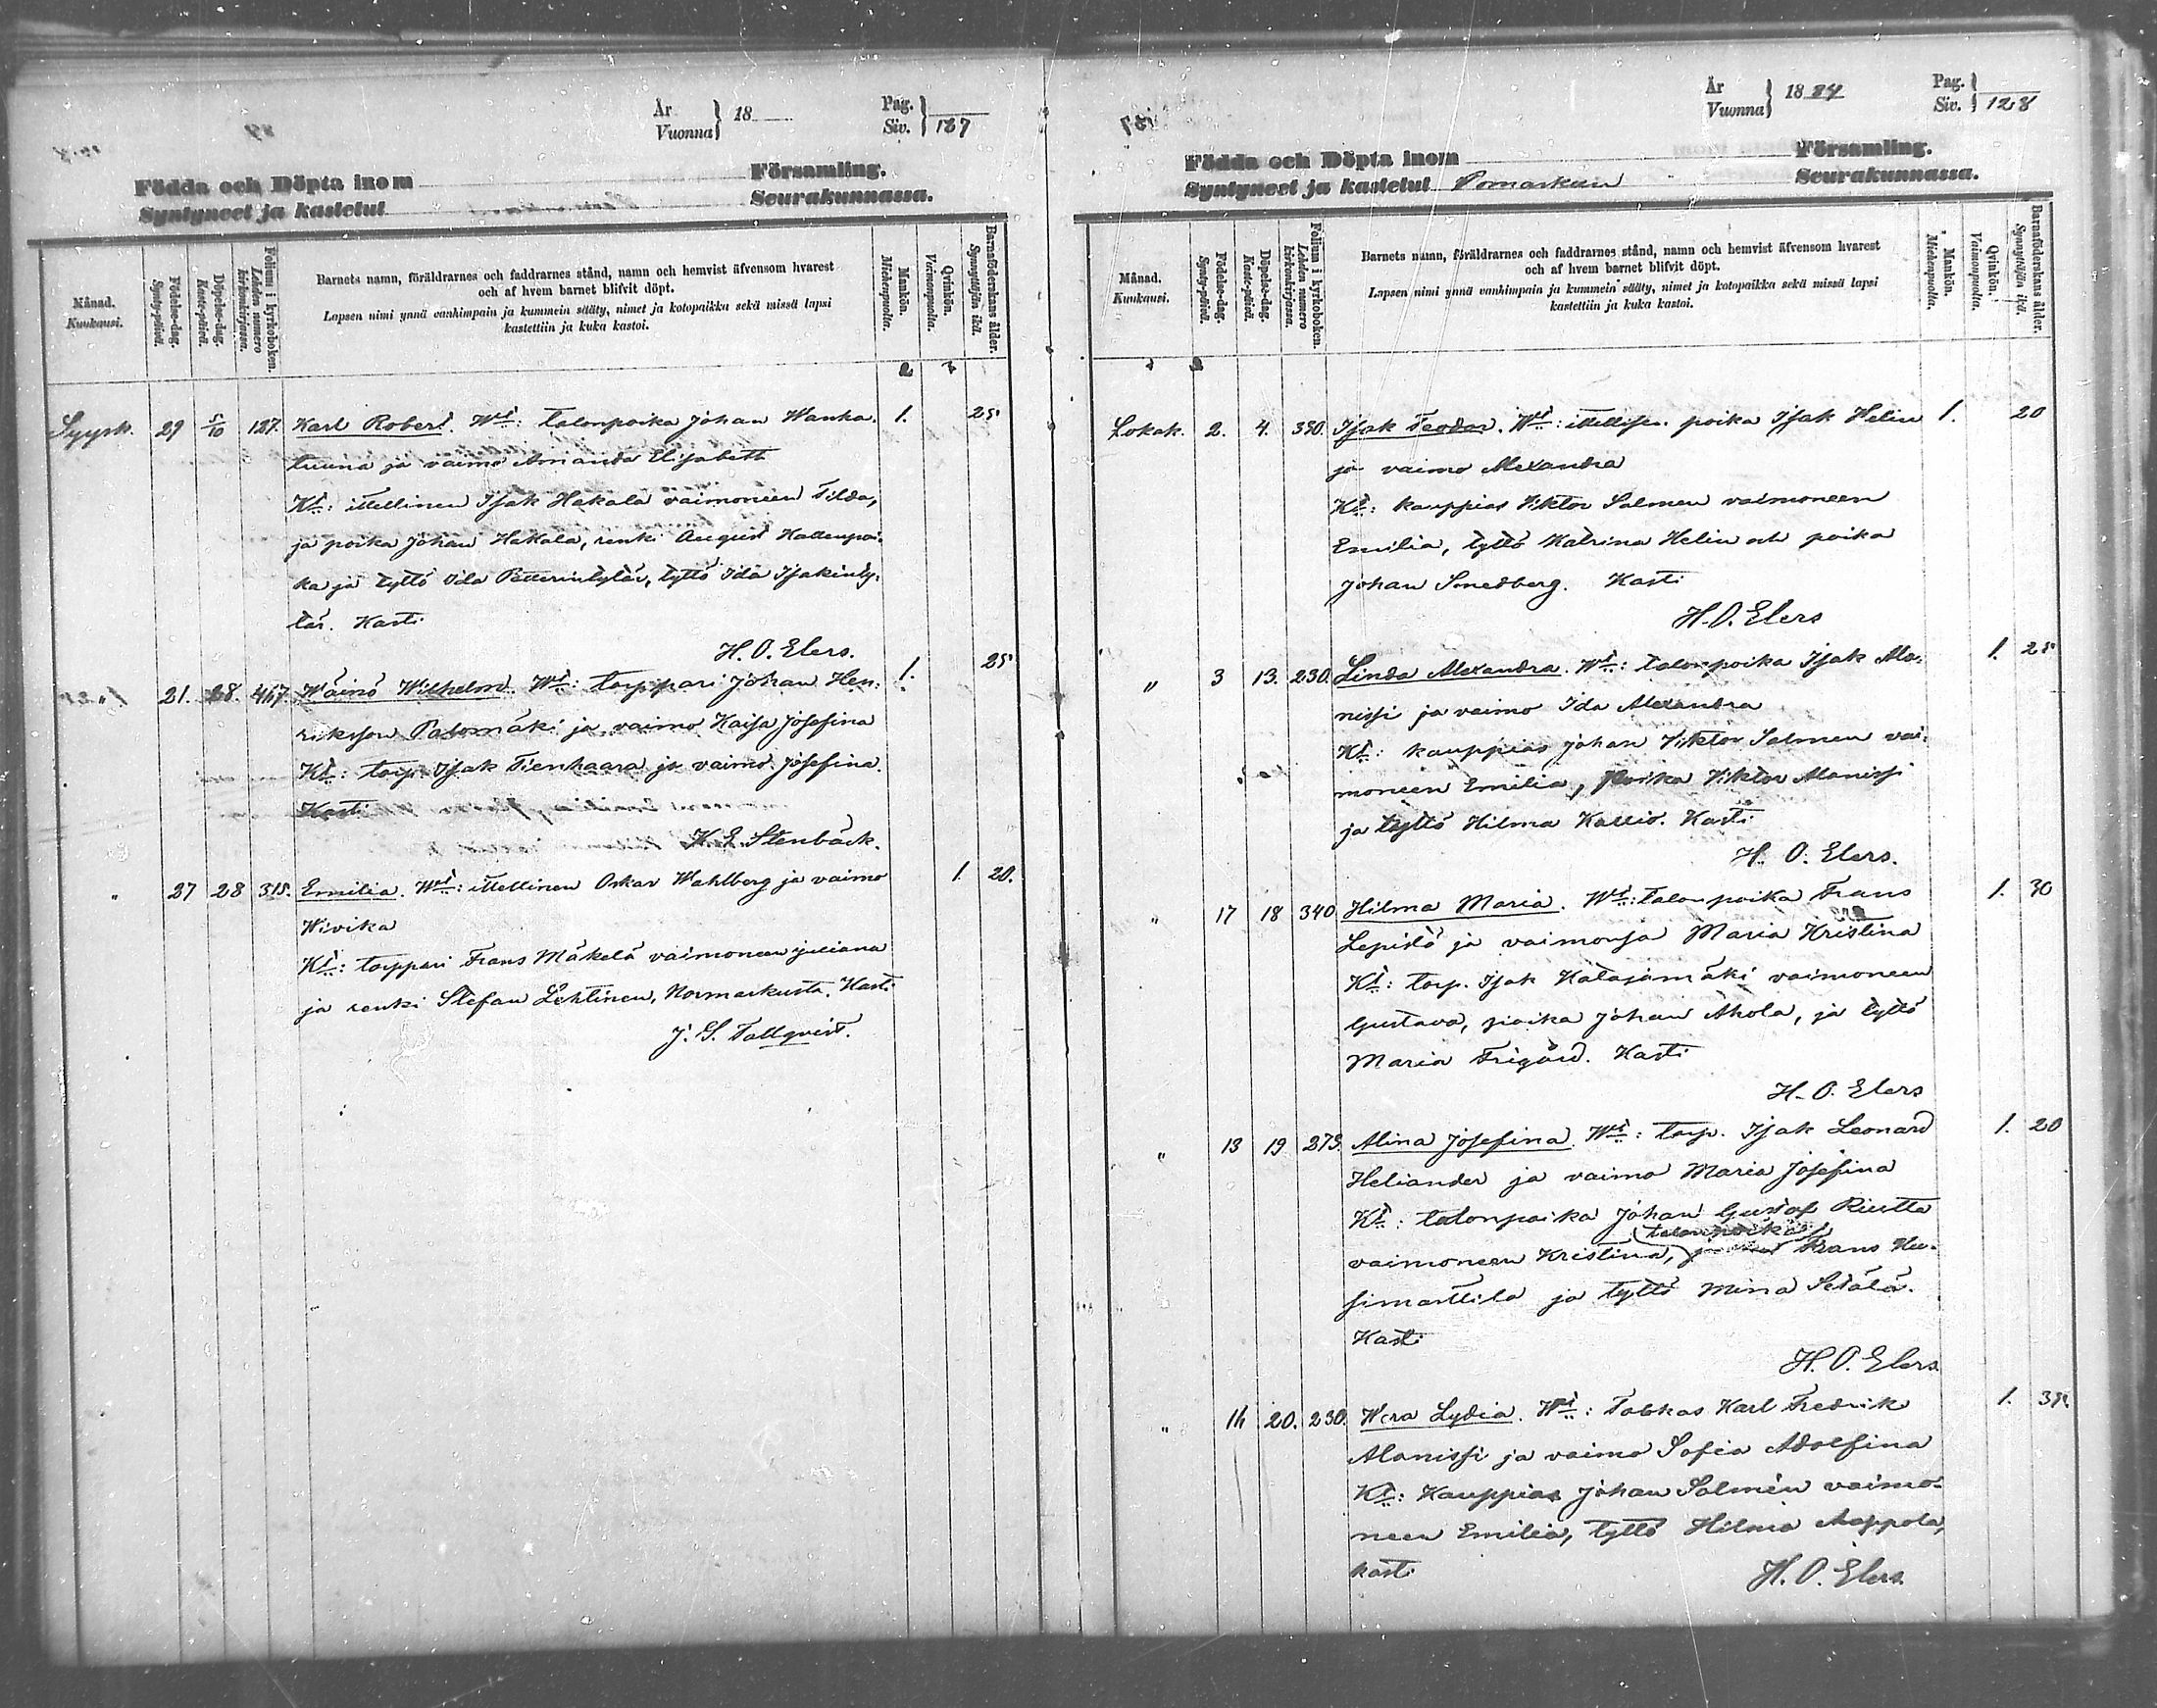 År
Vuonna } 18
Pag.
Siv. } 127
Födda och Döpta inom Församling.
Syntyneet ja kastetut Seurakunnassa.
Månad.
Kuukausi.
Födelse-dag.
Synty-päivä.
Döpelse-dag.
Kaste-päivä.
Folium i kyrkoboken.
Lehden numero kirkonkirjassa.
Barnets namn, föräldrarnes och faddrarnes stånd, namn och hemvist äfvensom hvarest
och af hvem barnet blifvit döpt.
Lapsen nimi ynnä vanhimpain ja kummein sääty, nimet ja kotopaikka sekä missä lapsi
kastettiin ja kuka kastoi.
Mankön.
Miehenpuolta.
Qvinkön.
Vaimonpuolta.
Barnaföderskans ålder.
Synnyttäjän ikä.
Syysk. 29 5/10 127. Karl Robert. Wt: talonpoika Johan Wanha- 1. 25
tuuna ja vaimo Amanda Elisabeth
Kt: itellinen Isak Hakala vaimoneen Tilda,
ja poika Johan Hakala, renki August Hallenpoi-
ka ja tyttö Ida Petterintytär, tyttö Ida Isakinty-
tär. Kasti
H. O. Elers.
" 21. 28. 467. Wäinö Wilhelm. Wt: torppari Johan Hen- 1. 25
riksson Palomäki ja vaimo Kaisa Josefina
Kt: torp. Isak Tienhaara ja vaimo Josefina.
Kasti
K. E. Stenbäck.
" 27 28 315. Emilia. Wt: itellinen Oskar Wahlberg ja vaimo 1. 20.
Wivika
Kt: torppari Frans Mäkelä vaimoneen Juliana
ja renki Stefan Lehtinen, Normarkusta. Kasti
J. S. Tallqvist.
År
Vuonna } 1884
Pag.
Siv. } 128
Födda och Döpta inom Församling.
Syntyneet ja kastetut Pomarkun Seurakunnassa.
Månad.
Kuukausi.
Födelse-dag.
Synty-päivä.
Döpelse-dag.
Kaste-päivä.
Folium i kyrkoboken.
Lehden numero kirkonkirjassa.
Barnets namn, föräldrarnes och faddrarnes stånd, namn och hemvist äfvensom hvarest
och af hvem barnet blifvit döpt.
Lapsen nimi ynnä vanhimpain ja kummein sääty, nimet ja kotopaikka sekä missä lapsi
kastettiin ja kuka kastoi.
Mankön.
Miehenpuolta.
Qvinkön.
Vaimonpuolta.
Barnaföderskans ålder.
Synnyttäjän ikä.
Lokak. 2. 4. 350 Isak Teodor. Wt: itellisen poika Isak Helin 1. 20
ja vaimo Alexandra
Kt: kauppias Viktor Salmen vaimoneen
Emilia, tyttö Katrina Helin och poika
Johan Smedberg. Kasti
H. O. Elers
" 3 13. 230. Linda Alexandra. Wt: talonpoika Isak Ala- 1. 25
nissi ja vaimo Ida Alexandra
Kt: kauppias Johan Viktor Salmen vai-
moneen Emilia, poika Viktor Alanissi
ja tyttö Hilma Kallio. Kasti
H. O. Elers.
" 17 18 340 Hilma Maria. Wt: talonpoika Frans 1. 30
Lepistö ja vaimonsa Maria Kristina
Kt: torp. Isak Katajamäki vaimoneen
Gustava, poika Johan Ahola, ja tyttö
Maria Frigård. Kasti
H. O. Elers
" 13 19 273. Alina Josefina. Wt: torp. Isak Leonard 1. 20
Heliander ja vaimo Maria Josefina
Kt: talonpoika Johan Gustaf Riutta
vaimoneen Kristina, talonpoika Frans Uu-
simarttila ja tyttö Mina Setälä.
Kasti
H. O. Elers.
" 14 20. 230. Wera Lydia. Wt: Karl Fredrik 1.
Alanissi ja vaimo Sofia Adolfina
Kt: Kauppias Johan Salmén vaimo-
neen Emilia, tyttö Hilma Aappola,
kasti
H. O. Elers.